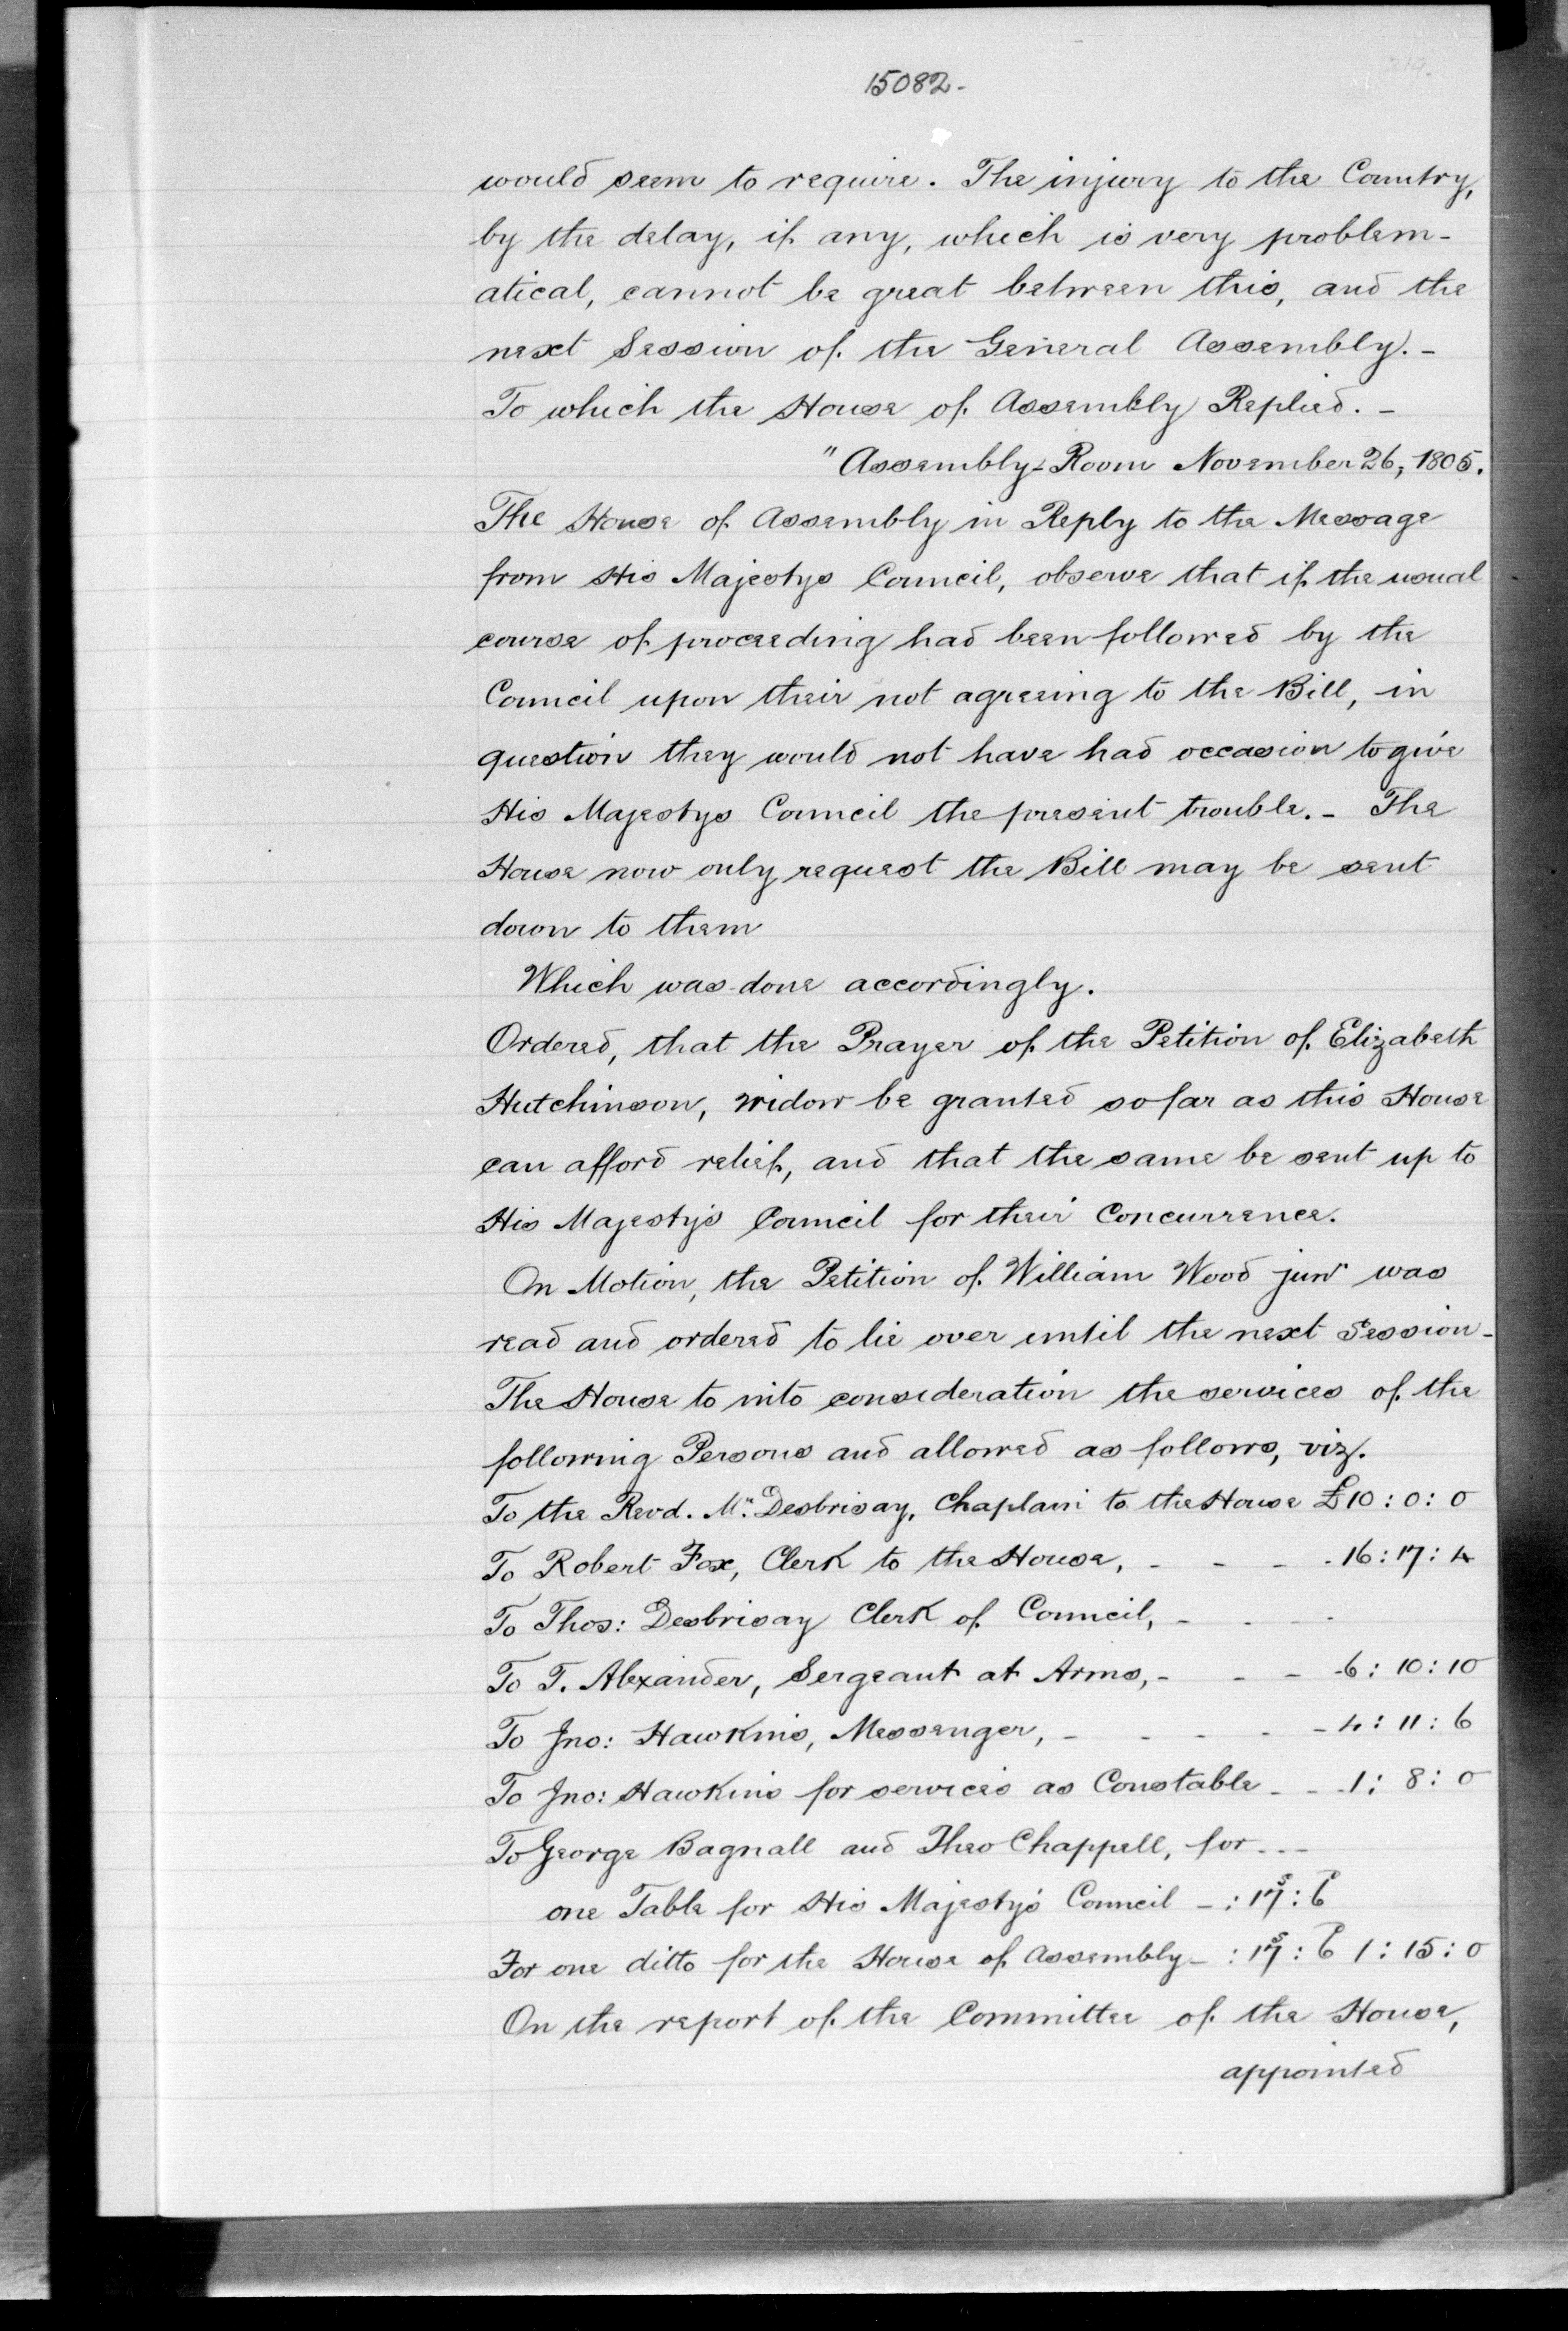 15082-
would seem to require. The injury to the Country,
by the delay, if any, which is very problem-
atical, cannot be great between this, and the
next Session of the General Assembly. -
To which the House of Assembly Replied. -
"Assembly-Room November 26, 1805.
The House of Assembly in Reply to the Message
from His Majestys Council, observe that if the usual
course of proceeding had been followed by the
Council upon their not agreeing to the Bill, in
question they would not have had occasion to give
His Majestys Council the present trouble. - The
House now only request the Bill may be sent
down to them
Which was done accordingly.
Ordered, that the Prayer of the Petition of Elizabeth
Hutchinson, widow be granted so far as this House
can afford relief, and that the same be sent up to
His Majesty's Council for their Concurrence.
On Motion, the Petition of William Wood junr was
read and ordered to lie over until the next Session -
The House to into consideration the services of the
following Persons and allowed as follows, viz.
To the Revd. Mr. Desbrisay, Chaplain to the House £10 : 0 : 0
To Robert Fox, Clerk to the House, - - - - 16 : 17 : 4
To Thos: Desbrisay Clerk of Council, - - - -
To T. Alexander, Sergeant at Arms, - - - - 6 : 10 : 10
To Jno: Hawkins, Messenger, - - - - - 4 : 11 : 6
To Jno: Hawkins for services as Constable - - - 1 : 8 : 0
To George Bagnall and Theo Chappell, for - - -
one Table for His Majesty's Council - : 17s : 6d
For one ditto for the House of Assembly - : 17s : 6d 1 : 15 : 0
On the report of the Committee of the House,
appointed